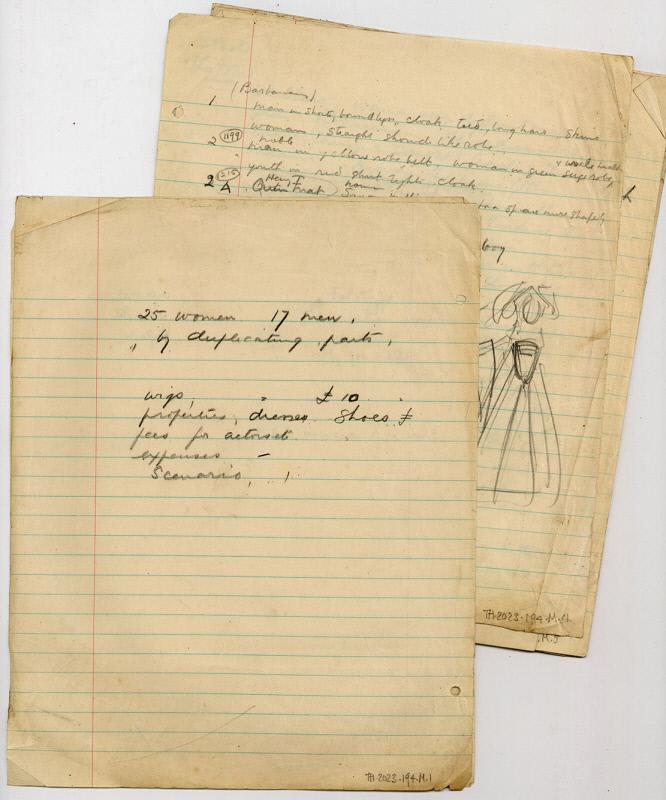 (Barbarians)
1 man in short, bound legs, cloak, long hair, skins
woman, straight shroud like robe.
2 1199 noble man in yellow robe belt. woman in green sleeps robe,
youth in red short tights cloak.
2 1215 Hen I
are more shapely
boy
25 women 17 men,
" by duplicating parts,
wigs, " £10
properties, dresses shoes £
fees for actors etc
expenses —
Scenario, 1
TH-2023-194-M.1
TH-2023-194-M.
.M.5